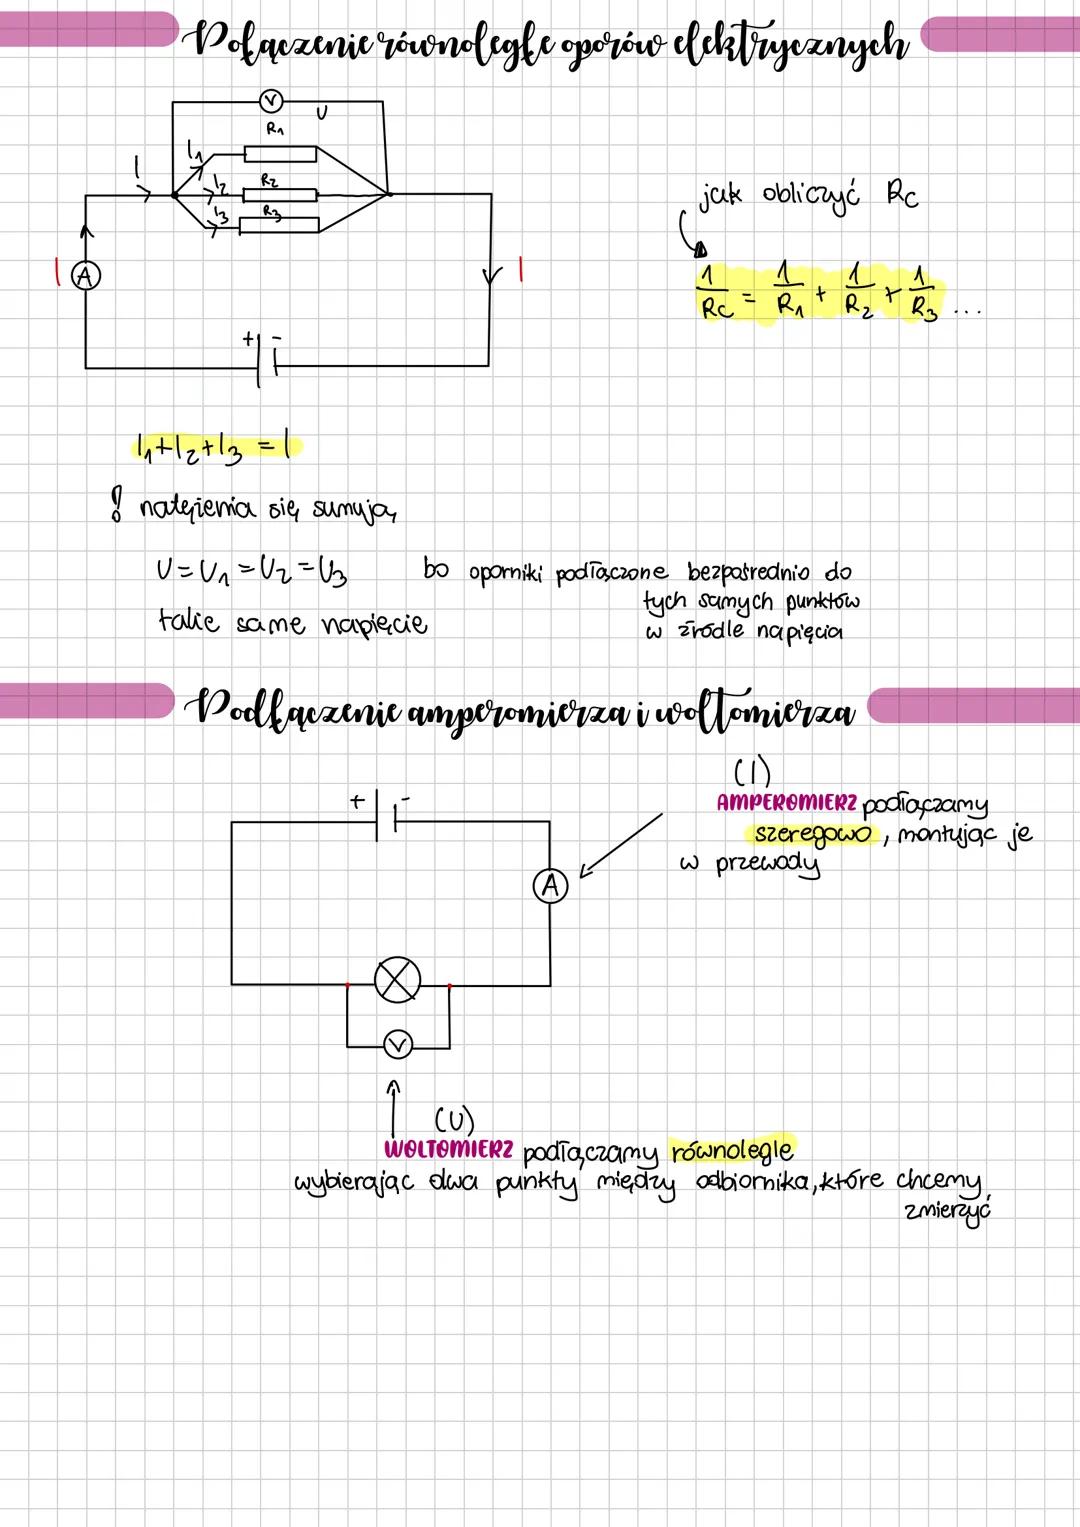 Połączenie równoległe oporów elektrycznych
V
U
R1
I1
I
I2
R2
I3
R3
I
A
I
+ -
jak obliczyć Rc
1/Rc = 1/R1 + 1/R2 + 1/R3 ...
I1+I2+I3 = I
! natężenia się sumują
U=U1=U2=U3
bo oporniki podłączone bezpośrednio do
tych samych punktów
takie same napięcie
w źródle napięcia
Podłączenie amperomierza i woltomierza
(I)
+ -
AMPEROMIERZ podłączamy
szeregowo, montując je
w przewody
A
V
(U)
WOLTOMIERZ podłączamy równolegle
wybierając dwa punkty między odbiornika, które chcemy
zmierzyć